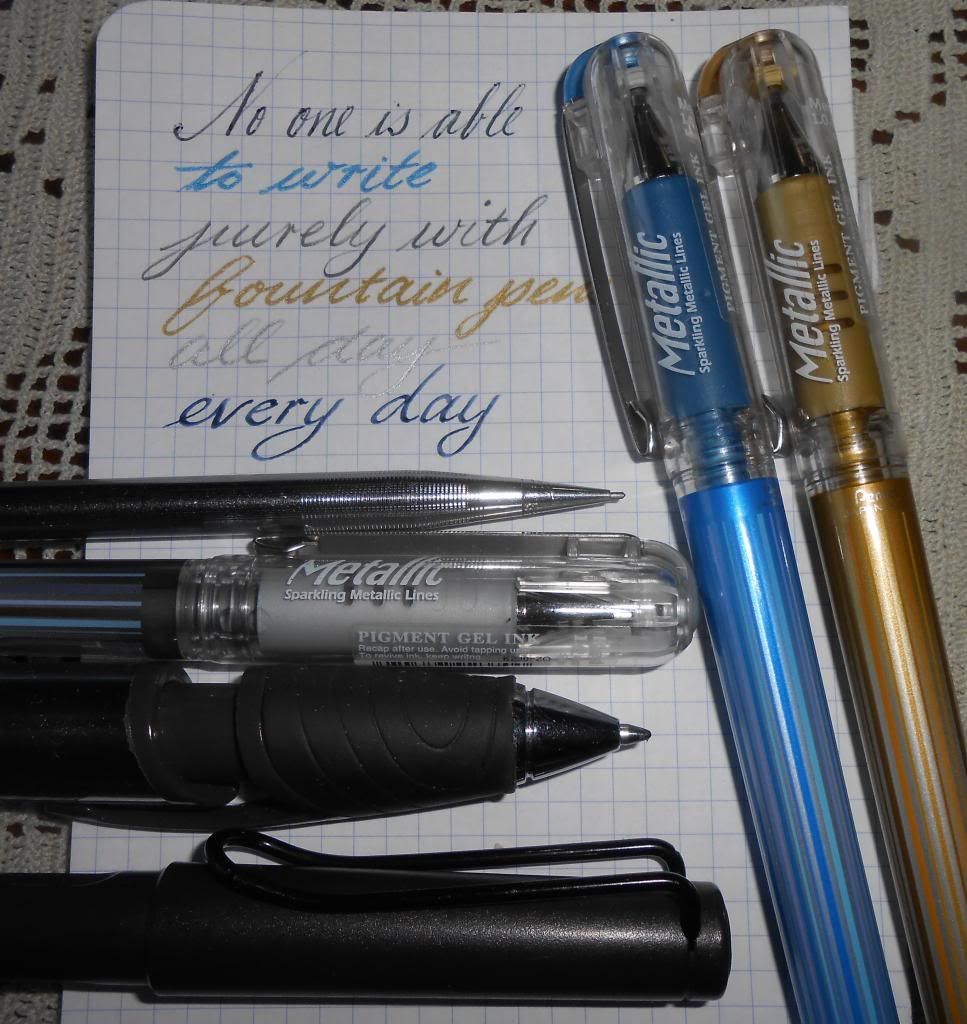 No one is able
to write
purely with
fountain pen
all day
every day
Metallic
Sparkling Metallic Lines
PIGMENT GEL INK
Metallic
Sparkling Metallic Lines
PIGMENT GEL INK
Metallic
Sparkling Metallic Lines
PIGMENT GEL INK
Recap after use. Avoid tapping
To revive ink, keep writing.